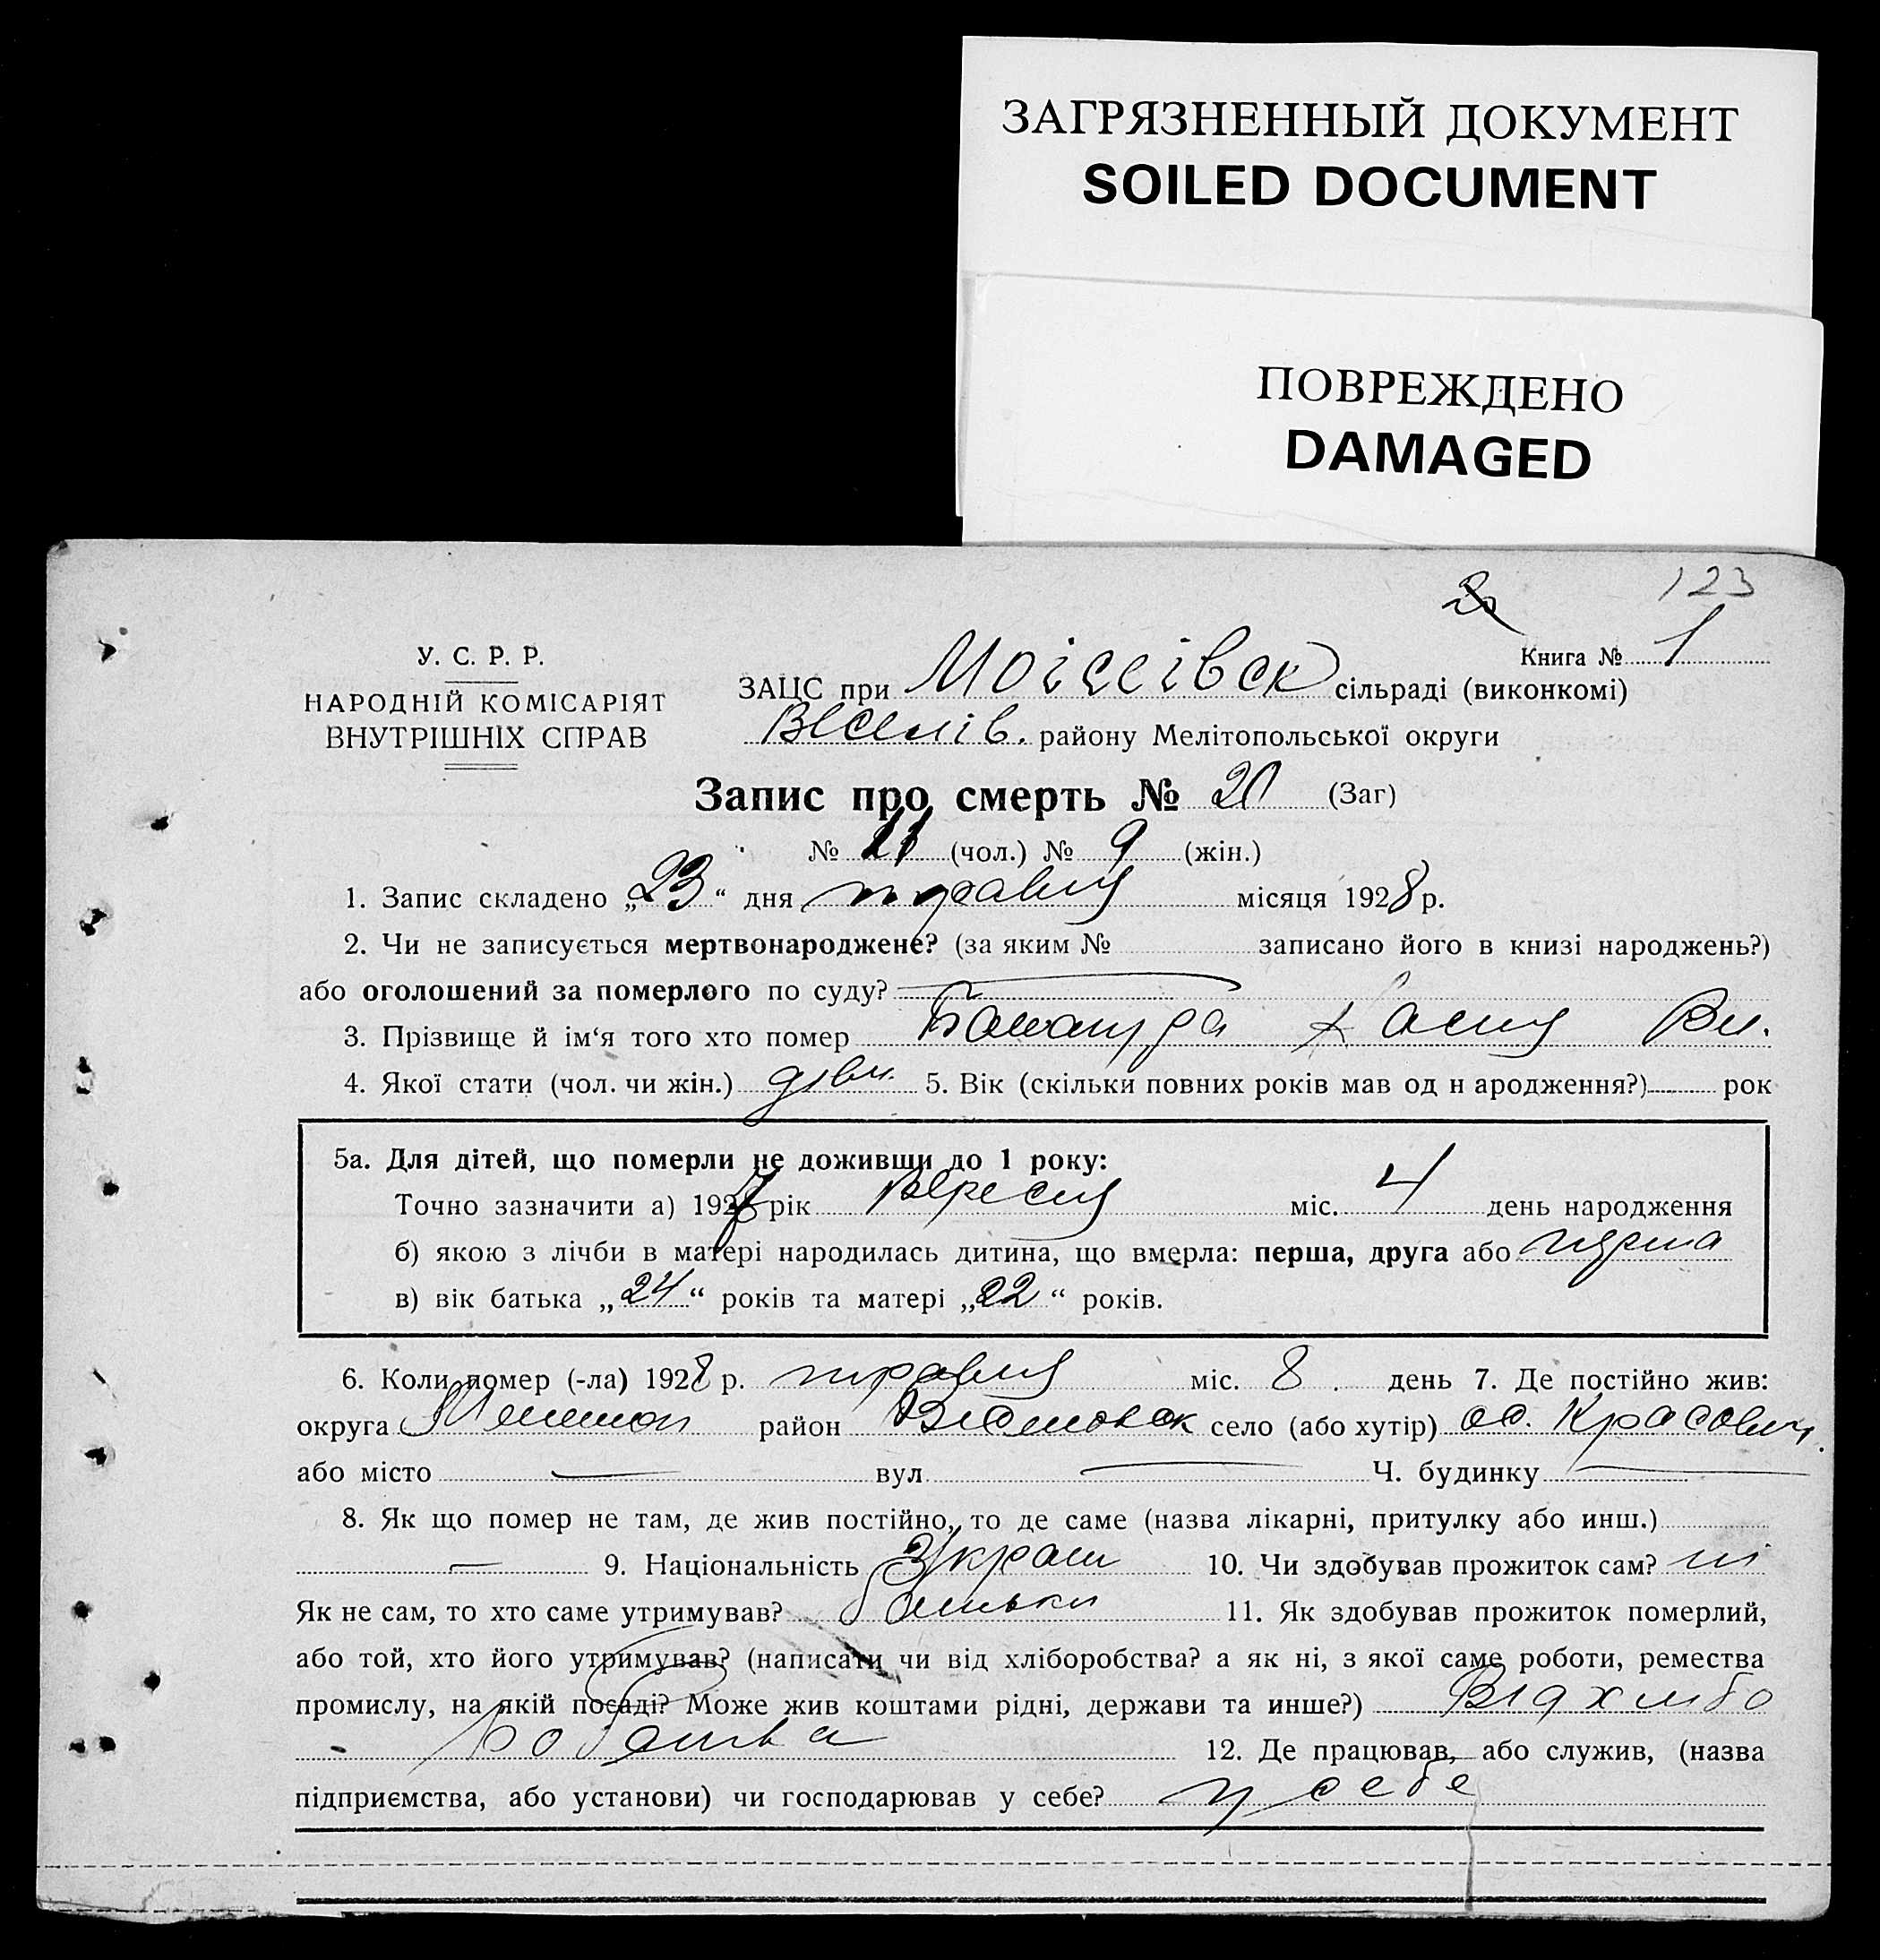 ЗАГРЯЗНЕННЫЙ ДОКУМЕНТ
SOILED DOCUMENT
ПОВРЕЖДЕНО
DAMAGED
123
У. С. Р. Р.
НАРОДНІЙ КОМІСАРІЯТ
ВНУТРІШНІХ СПРАВ
Книга № 1
ЗАЦС при Моісеівск сільраді (виконкомі)
Веселів. району Мелітопольської округи
Запис про смерть № 20 (Заг)
№ 11 (чол.) № 9 (жін.)
1. Запис складено „23“ дня травня місяця 1928 р.
2. Чи не записується мертвонароджене? (за яким № записано його в книзі народжень?)
або оголошений за померлого по суду?
3. Прізвище й ім‘я того хто помер
4. Якої стати (чол. чи жін.) дівч. 5. Вік (скільки повних років мав од н ародження?) рок
5а. Для дітей, що померли не доживши до 1 року:
Точно зазначити а) 1927 рік Вересня міс. 4 день народження
б) якою з лічби в матері народилась дитина, що вмерла: перша, друга або перша
в) вік батька „24“ років та матері „22“ років.
6. Коли помер (-ла) 1928 р. травня міс. 8 день 7. Де постійно жив:
округа Мелітоп район село (або хутір)
або місто — вул. — Ч. будинку —
8. Як що помер не там, де жив постійно, то де саме (назва лікарні, притулку або инш.)
— 9. Національність Україн 10. Чи здобував прожиток сам? ні
Як не сам, то хто саме утримував? батьки 11. Як здобував прожиток померлий,
або той, хто його утримував? (написати чи від хліборобства? а як ні, з якої саме роботи, ремества
промислу, на якій посаді? Може жив коштами рідні, держави та инше?) Від хлібо
робства 12. Де працював, або служив, (назва
підприємства, або установи) чи господарював у себе? у себе